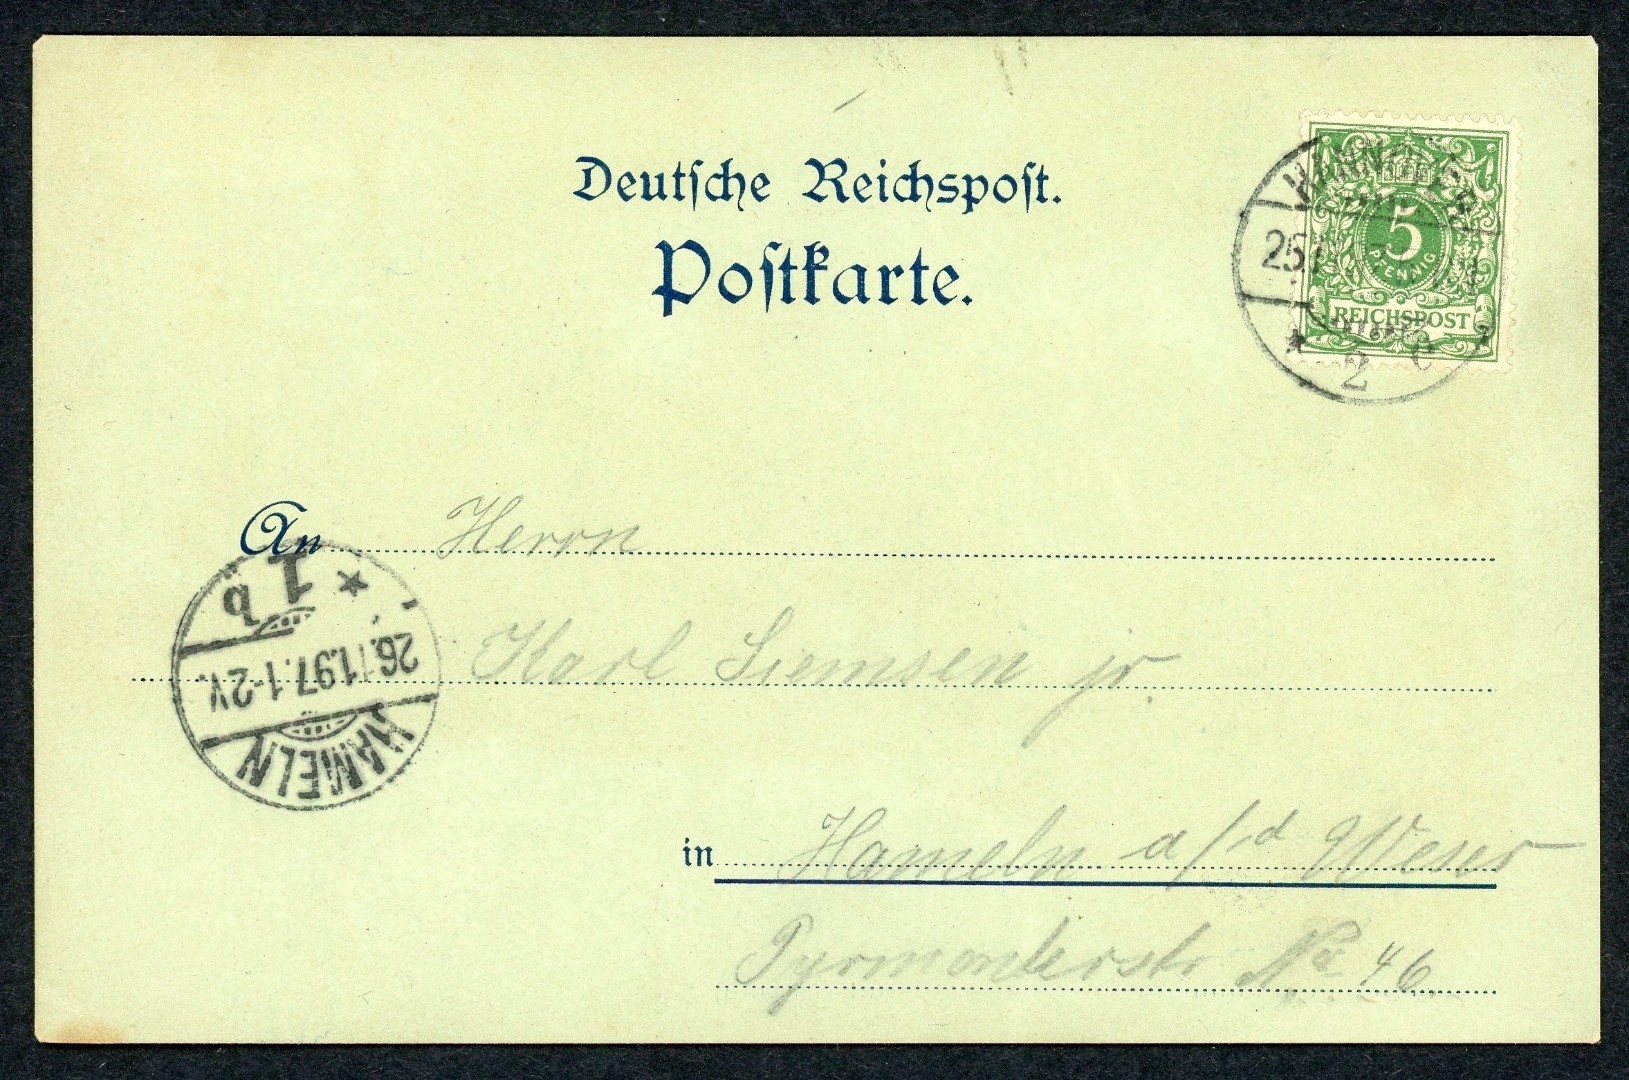 Deutsche Reichspost.
Postkarte.
HANNOVER
25
* 2 c
5
PFENNIG
REICHSPOST
An Herrn
Karl Siemsen jr.
in Hameln a/d Weser
Pyrmonterstr No 46
HAMELN
26.11.97.1-2V.
* 1 b